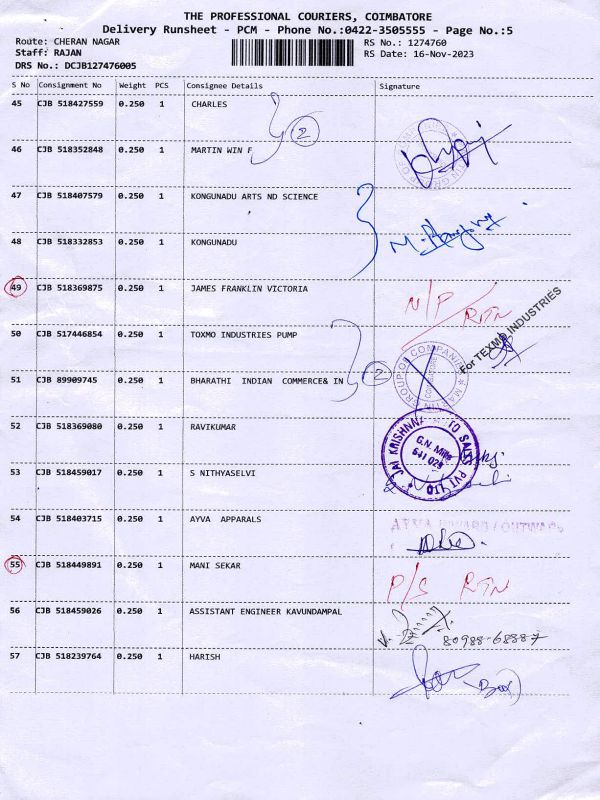 THE PROFESSIONAL COURIERS, COIMBATORE
Delivery Runsheet - PCM - Phone No.:0422-3505555 - Page No.:5
Route: CHERAN NAGAR
RS No.: 1274760
Staff: RAJAN
RS Date: 16-Nov-2023
DRS No.: DCJB127476005
S No Consignment No Weight PCS Consignee Details Signature
45 CJB 518427559 0.250 1 CHARLES
2
46 CJB 518352848 0.250 1 MARTIN WIN F
47 CJB 518407579 0.250 1 KONGUNADU ARTS ND SCIENCE
48 CJB 518332853 0.250 1 KONGUNADU
49 CJB 518369875 0.250 1 JAMES FRANKLIN VICTORIA N/P RTN
For TEXMO INDUSTRIES
50 CJB 517446854 0.250 1 TOXMO INDUSTRIES PUMP
2
51 CJB 89909745 0.250 1 BHARATHI INDIAN COMMERCE& IN
52 CJB 518369080 0.250 1 RAVIKUMAR
JAI KRISHNNA AUTO SALES PVT LTD
G.N. Mills
641 029
53 CJB 518459017 0.250 1 S NITHYASELVI
54 CJB 518403715 0.250 1 AYVA APPARALS
55 CJB 518449891 0.250 1 MANI SEKAR P/S RTN
56 CJB 518459026 0.250 1 ASSISTANT ENGINEER KAVUNDAMPAL
80988-68887
57 CJB 518239764 0.250 1 HARISH